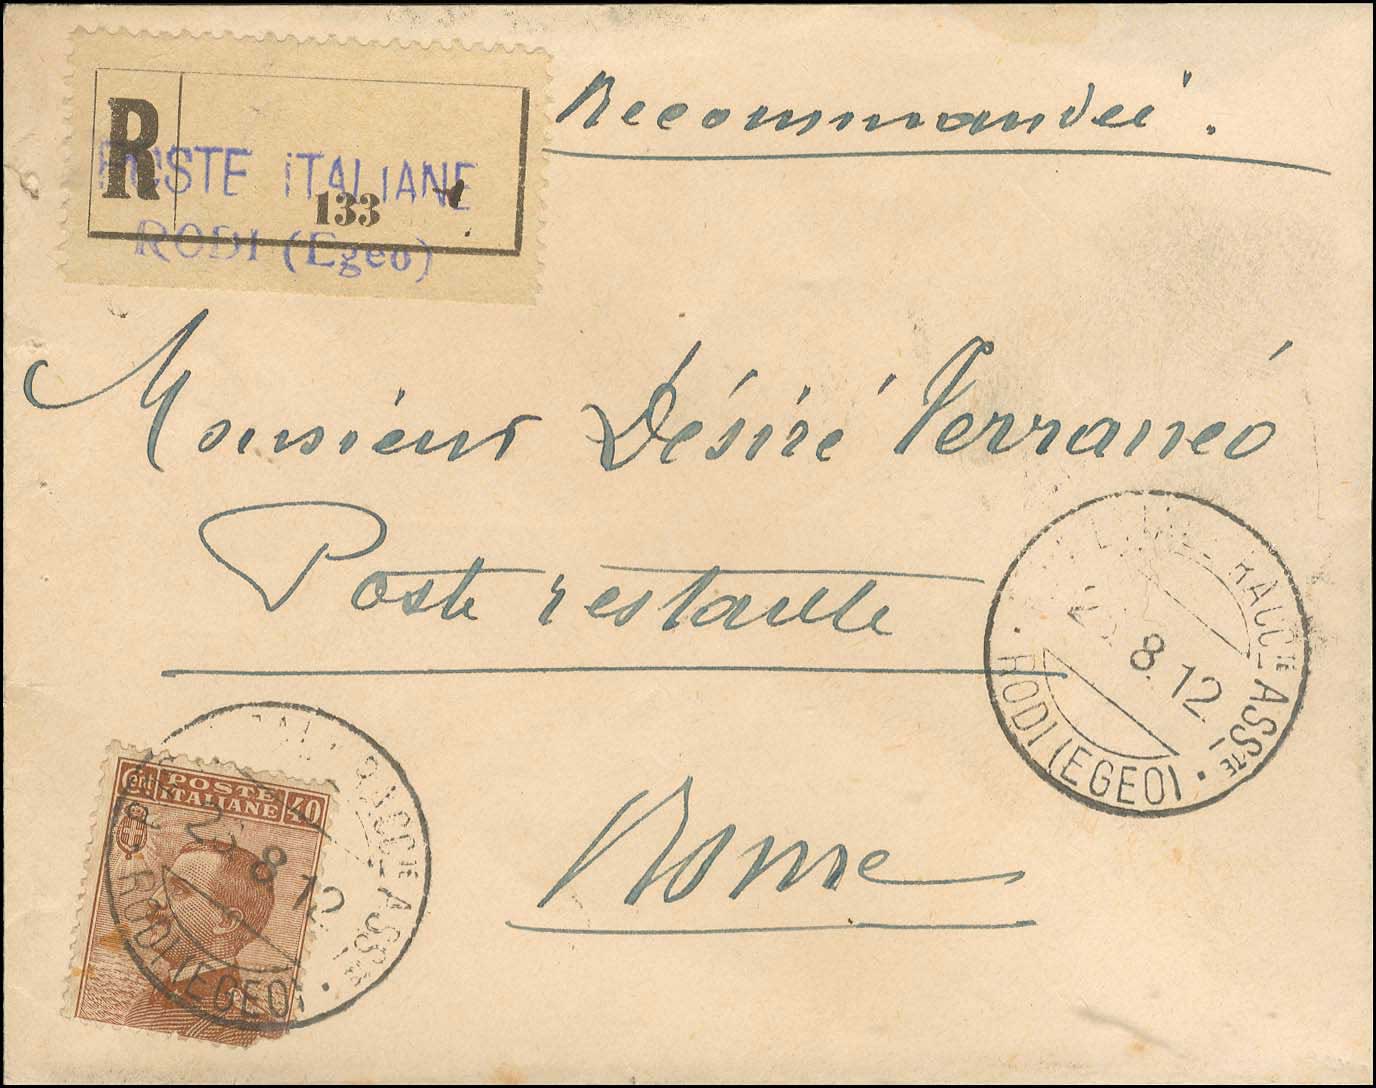 R
POSTE ITALIANE
133
RODI (Egeo)
Recommandée.
Monsieur Désiré Terranéo
Poste restante
Rome
RACC.TE ASS.TE
8.12
RODI (EGEO)
Cent POSTE ITALIANE 40
RACC.TE ASS.TE
8 12
RODI (EGEO)